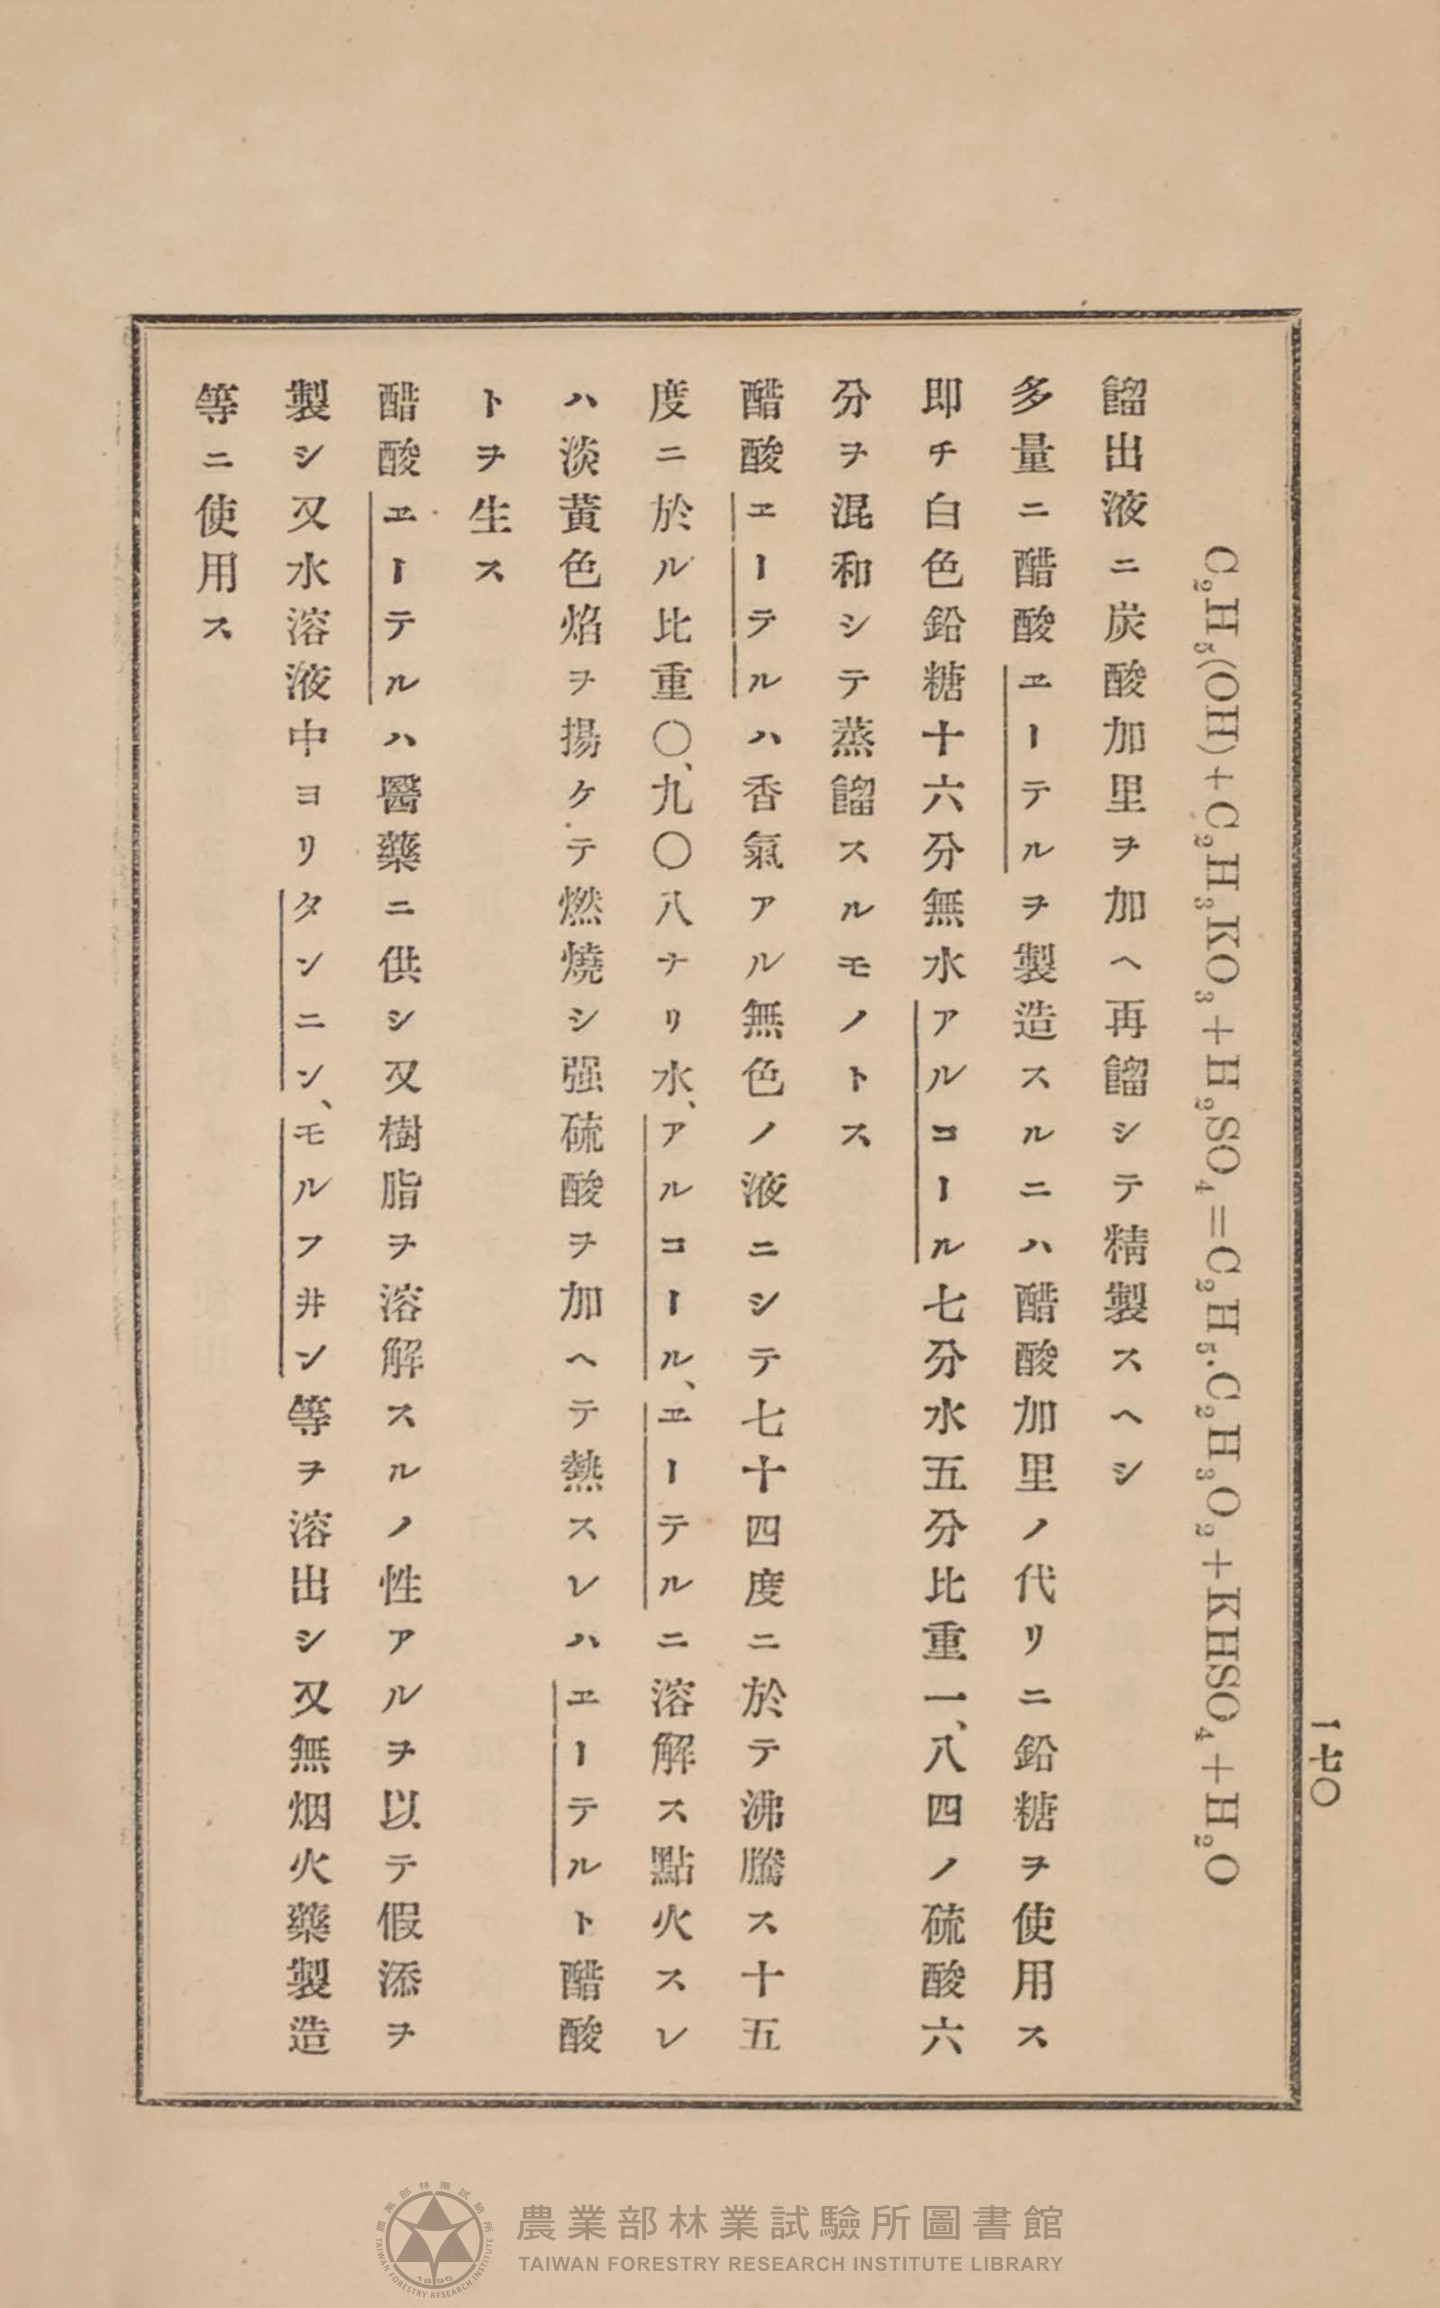 一七〇
C₂H₅(OH)+C₂H₃KO₃+H₂SO₄=C₂H₅.C₂H₃O₂+KHSO₄+H₂O
餾出液ニ炭酸加里ヲ加ヘ再餾シテ精製スヘシ
多量ニ醋酸ヱーテルヲ製造スルニハ醋酸加里ノ代リニ鉛糖ヲ使用ス
即チ白色鉛糖十六分無水アルコール七分水五分比重一、八四ノ硫酸六
分ヲ混和シテ蒸餾スルモノトス
醋酸ヱーテルハ香氣アル無色ノ液ニシテ七十四度ニ於テ沸騰ス十五
度ニ於ル比重〇、九〇八ナリ水、アルコール、ヱーテルニ溶解ス點火スレ
ハ淡黃色焰ヲ揚ケテ燃燒シ强硫酸ヲ加ヘテ熱スレハヱーテルト醋酸
トヲ生ス
醋酸ヱーテルハ醫藥ニ供シ又樹脂ヲ溶解スルノ性アルヲ以テ假漆ヲ
製シ又水溶液中ヨリタンニン、モルフ井ン等ヲ溶出シ又無烟火藥製造
等ニ使用ス
農業部林業試驗所圖書館
TAIWAN FORESTRY RESEARCH INSTITUTE LIBRARY
農業部林業試驗所
TAIWAN FORESTRY RESEARCH INSTITUTE
1896